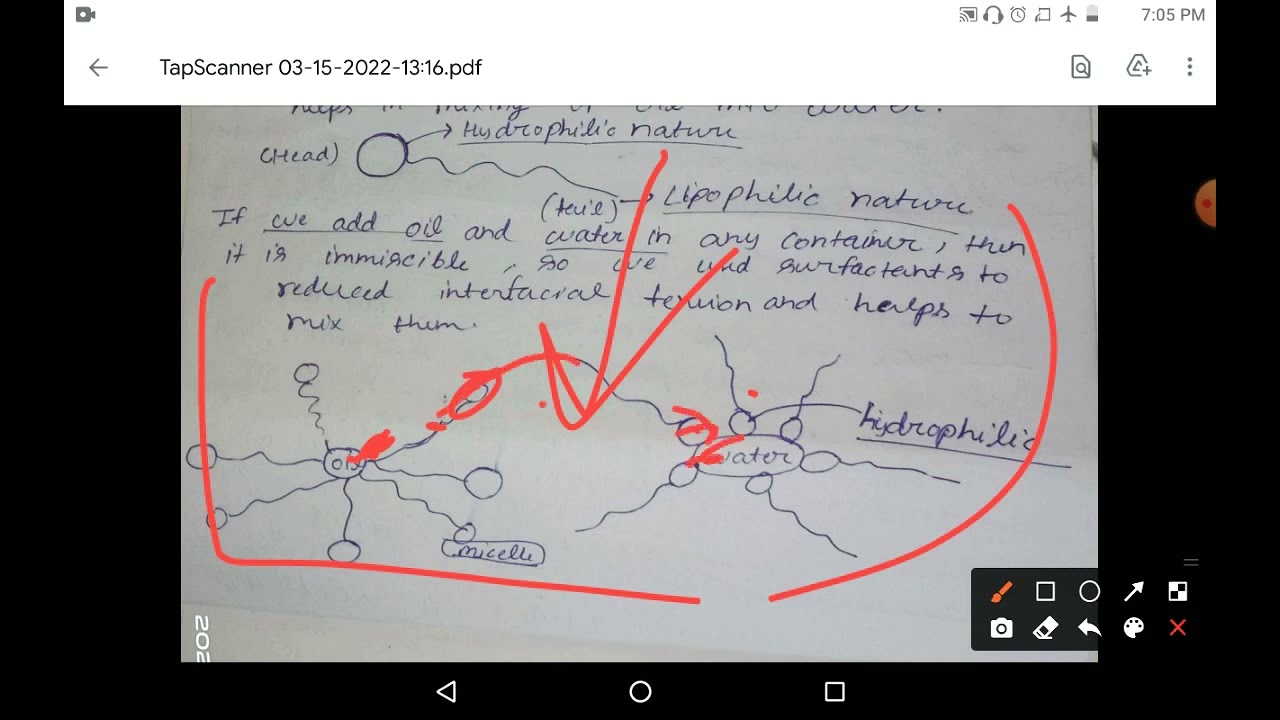 7:05 PM
TapScanner 03-15-2022-13:16.pdf
helps in mixing of
Hydrophilic nature
(Head)
(tail) → Lipophilic nature
If we add oil and water in any container, then
it is immiscible, so we und surfactants to
reduced interfacial tension and helps to
mix them.
Hydrophilic
oil
water
micelle
202